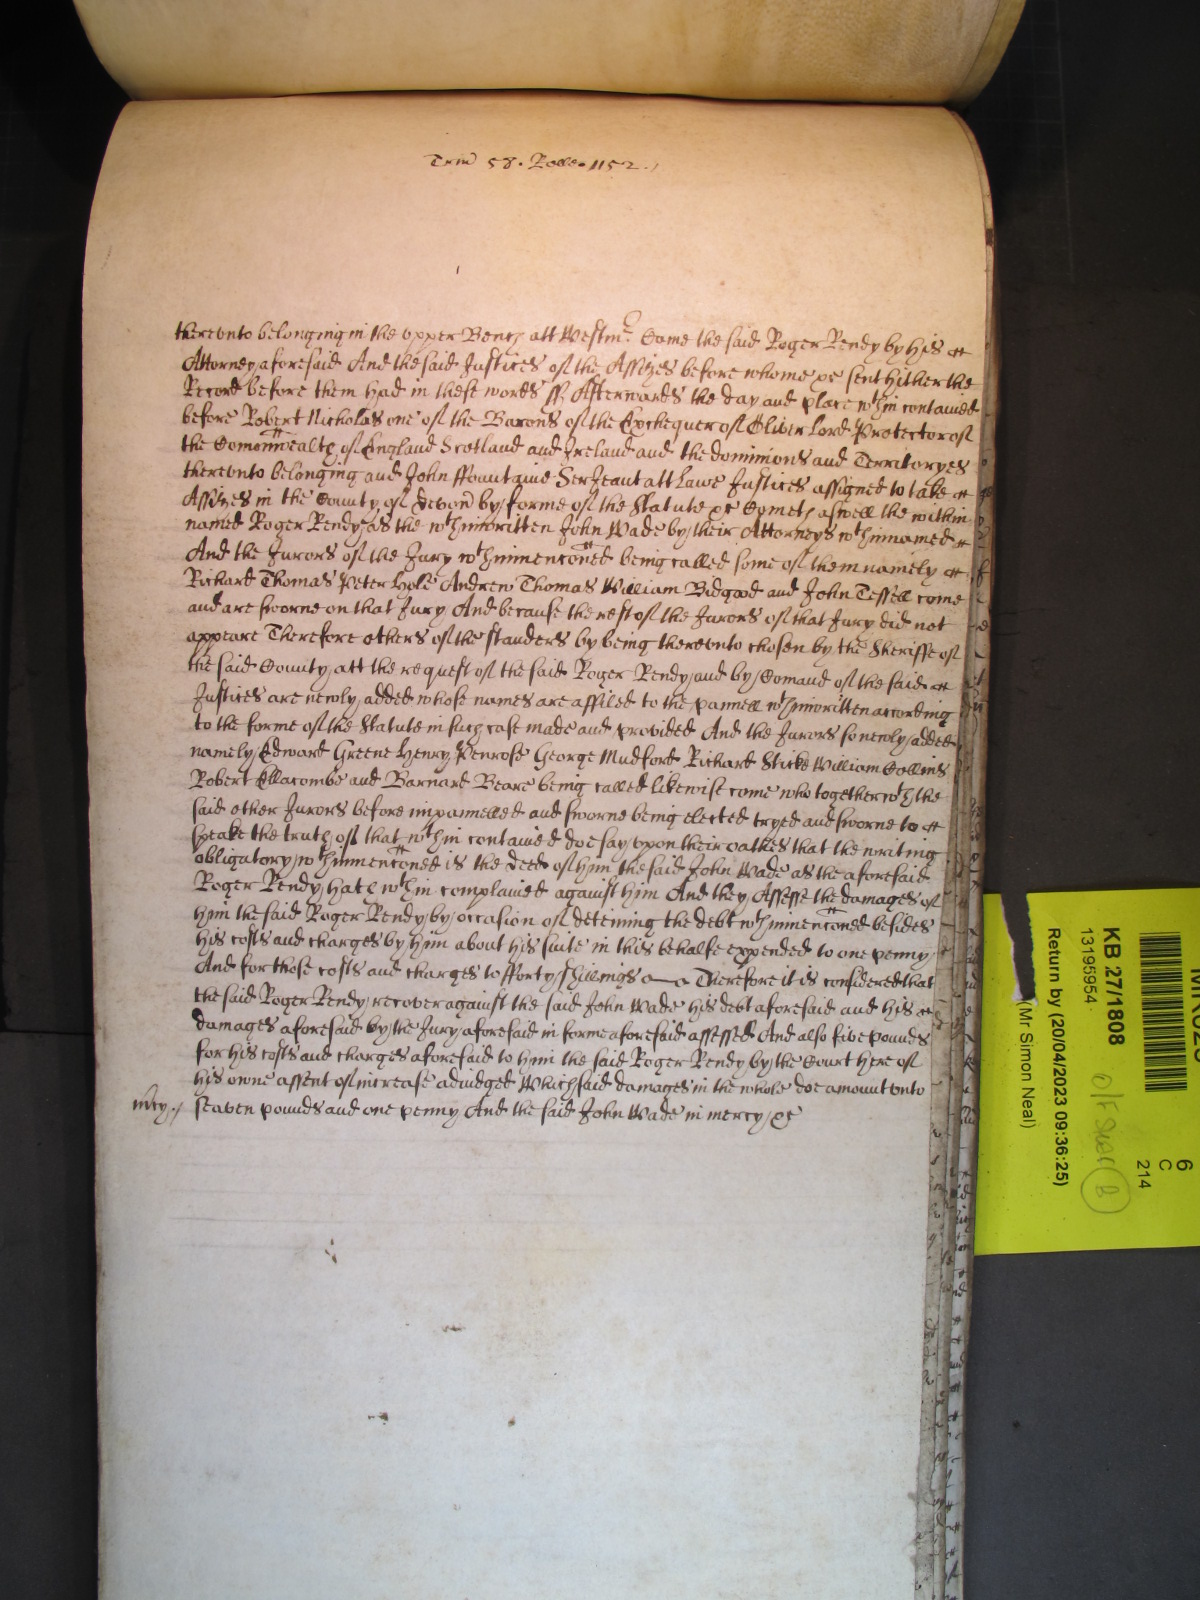 Trin 58. Rolle. 1152.
thereunto belonging in the upper Bench att Westmr. Came the said Roger Rendy by his
Attorney aforesaid And the said Justices of the Assizes before whome &c sent hither the
Record before them had in these words ss Afterwards the day and place wthin contained
before Robert Nicholas one of the Barons of the Exchequer of Oliver Lord Protector of
the Comonwealth of England Scotland and Ireland and the dominions and Territoryes
thereunto belonging and John ffountaine Serjeant att Lawe Justices assigned to take
Assizes in the County of Devon by forme of the Statute &c Cometh aswell the within
named Roger Rendy as the wthinwritten John Wade by their Attorneys wthinnamed
And the Jurors of the Jury wthinmenconed being called some of them namely
Richard Thomas Peter Hole Andrew Thomas William Bidgood and John Tessell come
and are sworne on that Jury And because the rest of the Jurors of that Jury did not
appeare Therefore others of the standers by being thereunto chosen by the Sheriffe of
the said County att the request of the said Roger Rendy and by Comand of the said
Justices are newly added whose names are affiled to the pannell wthinwritten according
to the forme of the Statute in such case made and provided And the Jurors so newly added
namely Edward Greene Henry Penrose George Mudford Richard Sticke William Collins
Robert Ellacombe and Barnard Beare being called likewise come who together wth the
said other Jurors before impannelled and sworne being elected tryed and sworne to
speake the truth of that wthin contained doe say upon their oathes that the writing
obligatory wthinmenconed is the deed of him the said John Wade as the aforesaid
Roger Rendy hath wthin complained against him And they Assesse the damages of
him the said Roger Rendy by occasion of deteining the debt wthinmenconed besides
his costs and charges by him about his suite in this behalfe expended to one penny
And for those costs and charges to fforty shillings Therefore it is considered that
the said Roger Rendy recover against the said John Wade his debt aforesaid and his
damages aforesaid by the Jury aforesaid in forme aforesaid assessed And also five pounds
for his costs and charges aforesaid to him the said Roger Rendy by the Court here of
his owne assent of increase adiudged Which said damages in the whole doe amount unto
mcy. seaven pounds and one penny And the said John Wade in mercy &c
KB 27/1808
13195954
Return by (20/04/2023 09:36:25)
(Mr Simon Neal)
6
C
214